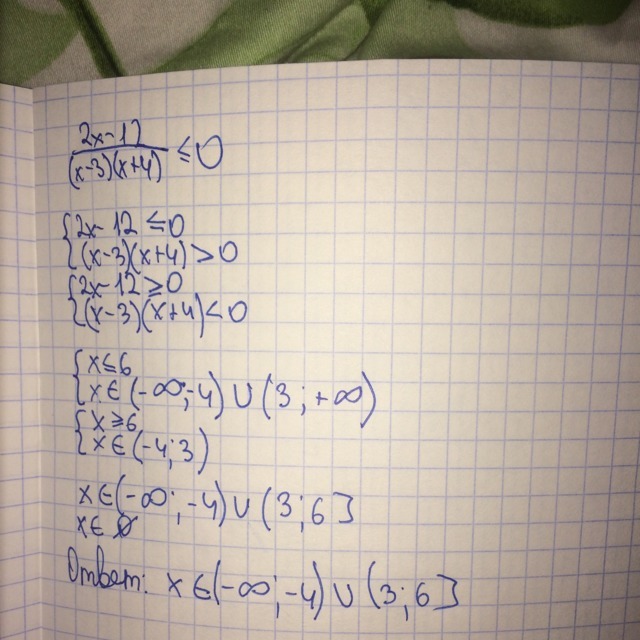 2x-12
(x-3)(x+4) ≤0
{2x-12≤0
{(x-3)(x+4)>0
{2x-12≥0
{(x-3)(x+4)<0
{x≤6
{x∈(-∞;-4)∪(3;+∞)
{x≥6
{x∈(-4;3)
x∈(-∞;-4)∪(3;6]
x∈ ∅
Ответ: x∈(-∞;-4)∪(3;6]